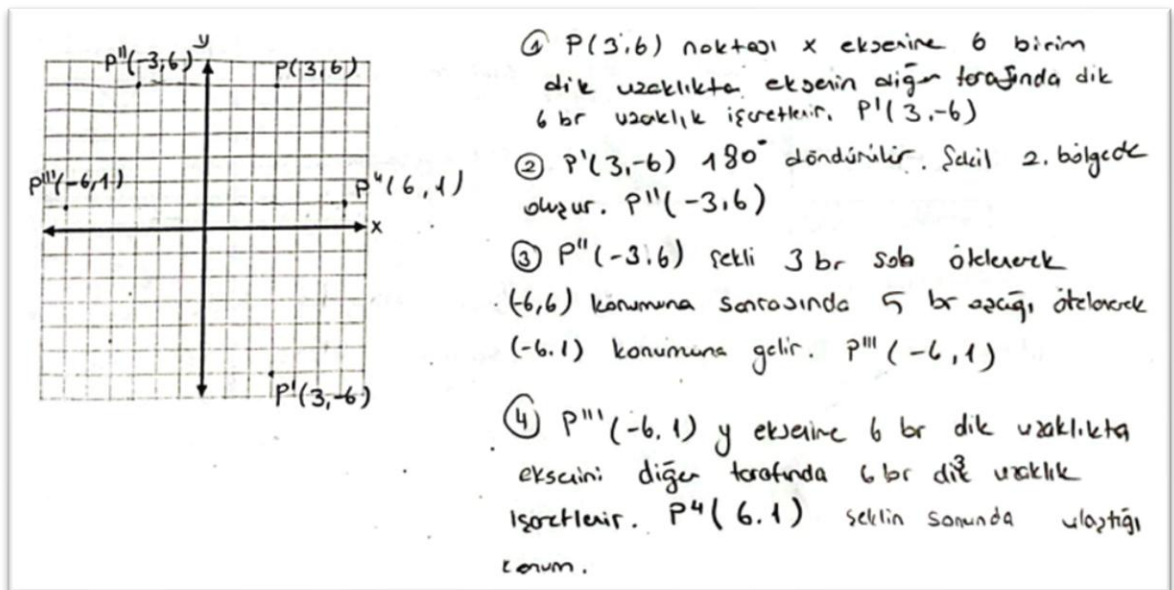 y
P''(-3,6)
P(3,6)
P'''(-6,1)
P⁴(6,1)
x
P'(3,-6)
① P(3,6) noktası x eksenine 6 birim
dik uzaklıkta eksenin diğer tarafında dik
6 br uzaklık işaretlenir. P'(3,-6)
② P'(3,-6) 180° döndürülür. Şekil 2. bölgede
oluşur. P''(-3,6)
③ P''(-3,6) şekli 3 br sola ötelenerek
(-6,6) konumuna sonrasında 5 br aşağı ötelenerek
(-6,1) konumuna gelir. P'''(-6,1)
④ P'''(-6,1) y eksenine 6 br dik uzaklıkta
eksenini diğer tarafında 6 br dik uzaklık
işaretlenir. P⁴(6,1) şeklin sonunda ulaştığı
konum.